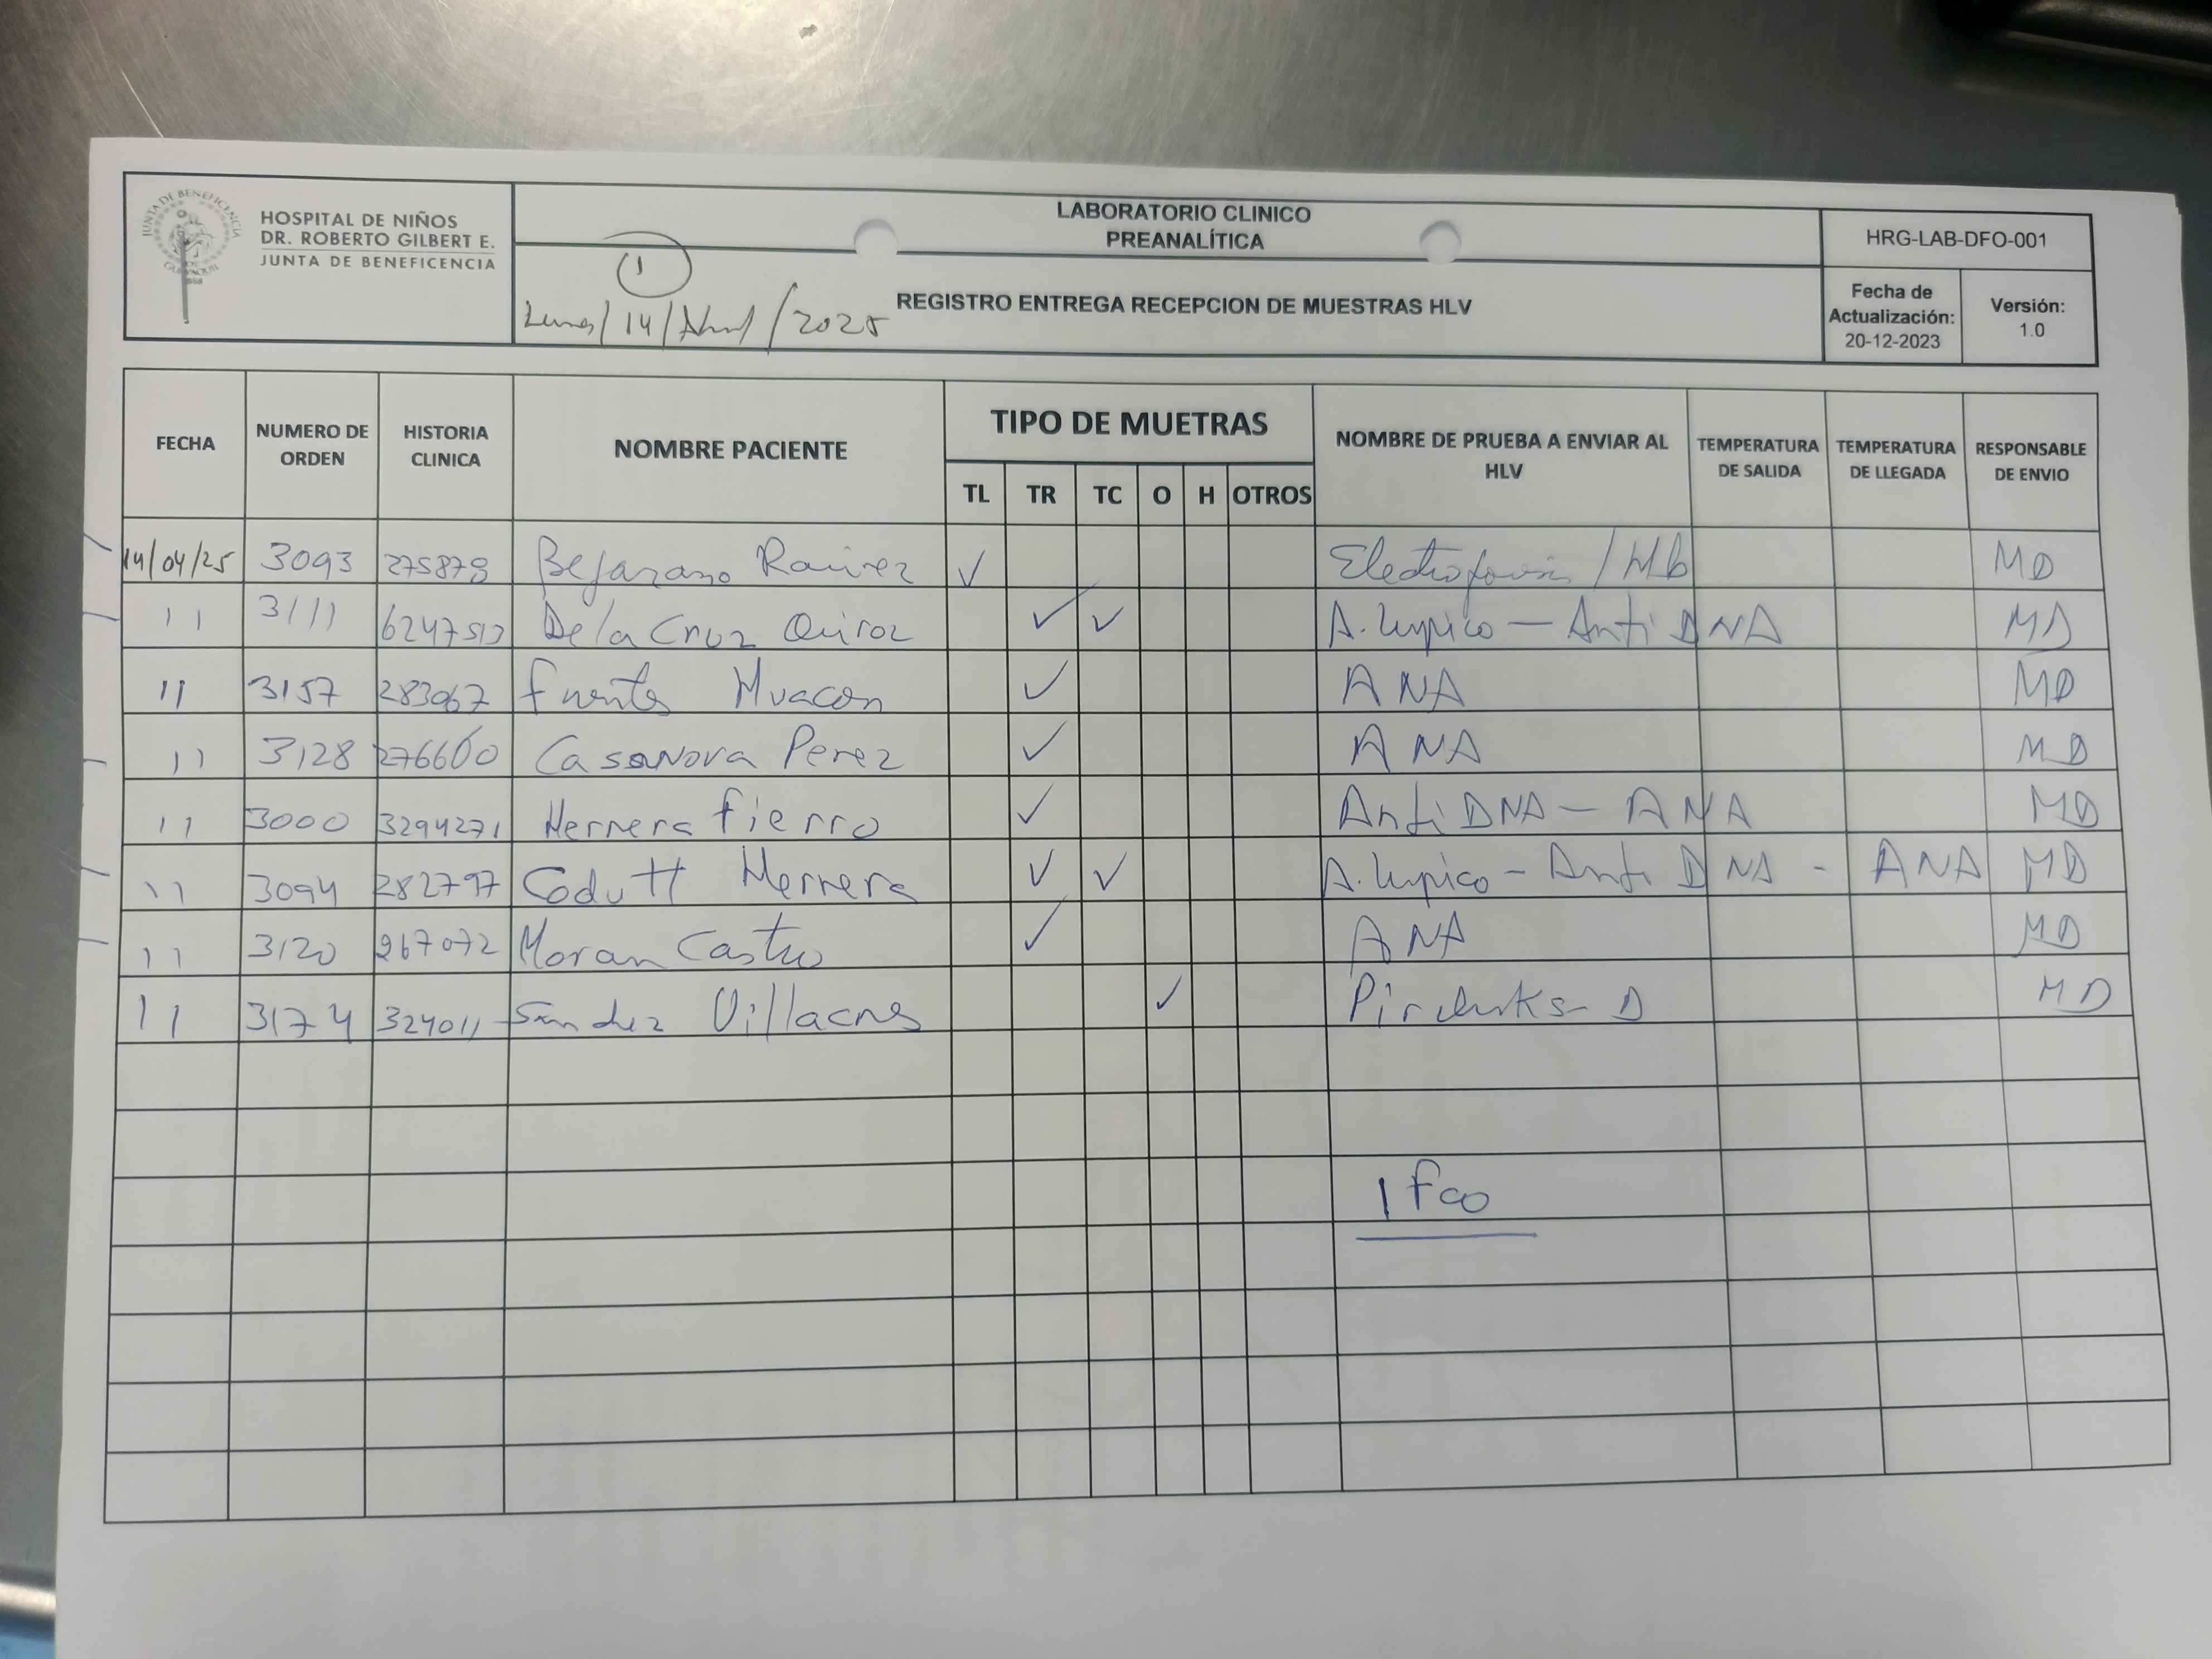 JUNTA DE BENEFICENCIA DE GUAYAQUIL
HOSPITAL DE NIÑOS
DR. ROBERTO GILBERT E.
JUNTA DE BENEFICENCIA
LABORATORIO CLINICO
PREANALÍTICA
HRG-LAB-DFO-001
1
Lunes/14/Abril/2025
REGISTRO ENTREGA RECEPCION DE MUESTRAS HLV
Fecha de Actualización: 20-12-2023
Versión: 1.0
FECHA NUMERO DE ORDEN HISTORIA CLINICA NOMBRE PACIENTE TIPO DE MUETRAS NOMBRE DE PRUEBA A ENVIAR AL HLV TEMPERATURA DE SALIDA TEMPERATURA DE LLEGADA RESPONSABLE DE ENVIO
TL TR TC O H OTROS
14/04/25 3093 275879 Bejarano Ramirez ✓ /Hb MD
11 3111 De la Cruz Quiroz ✓ ✓ A. Lupico - Anti DNA MD
11 3157 283067 Fuentes Huacon ✓ ANA MD
11 3128 276600 Casanova Perez ✓ ANA MD
11 3000 3294271 Herrera Fierro ✓ Anti DNA - ANA MD
11 3094 282797 Herrera ✓ ✓ A. Lupico - Anti DNA - ANA MD
11 3120 267072 Moran Castro ✓ ANA MD
11 3174 324011 Sanchez ✓ D MD
1 fco